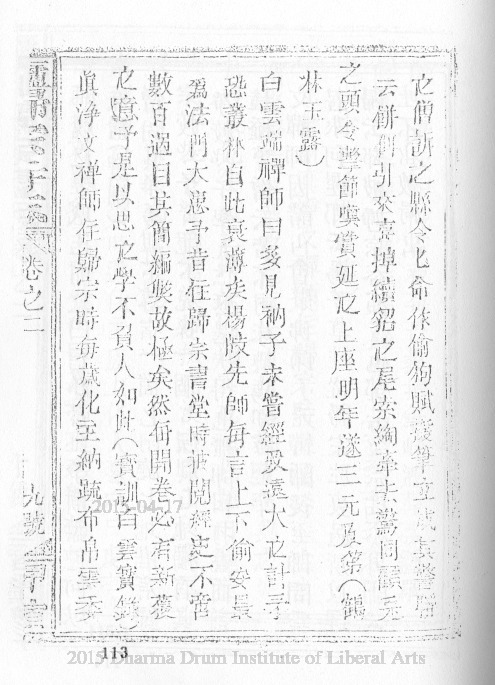 之僧訴之縣令令命作偷狗賦援筆立成其警聯
云餅餌引來喜掉續貂之尾索綯牽去驚回顧兔
之頭令擊節嘆賞延之上座明年遂三元及第(鶴
林玉露)
白雲端禪師曰多見衲子未嘗經及遠大之計予
恐叢林自此衰薄矣楊岐先師每言上下偷安最
為法門大患予昔住歸宗書堂時披閱經史不啻
數百過目其簡編弊故極矣然每開卷必有新獲
之意予是以思之學不負人如此(寶訓白雲實錄)
眞淨文禪師住歸宗時每歲化主納疏布帛雲委
卷之二
九號
113
2015-04-17
2015 Dharma Drum Institute of Liberal Arts